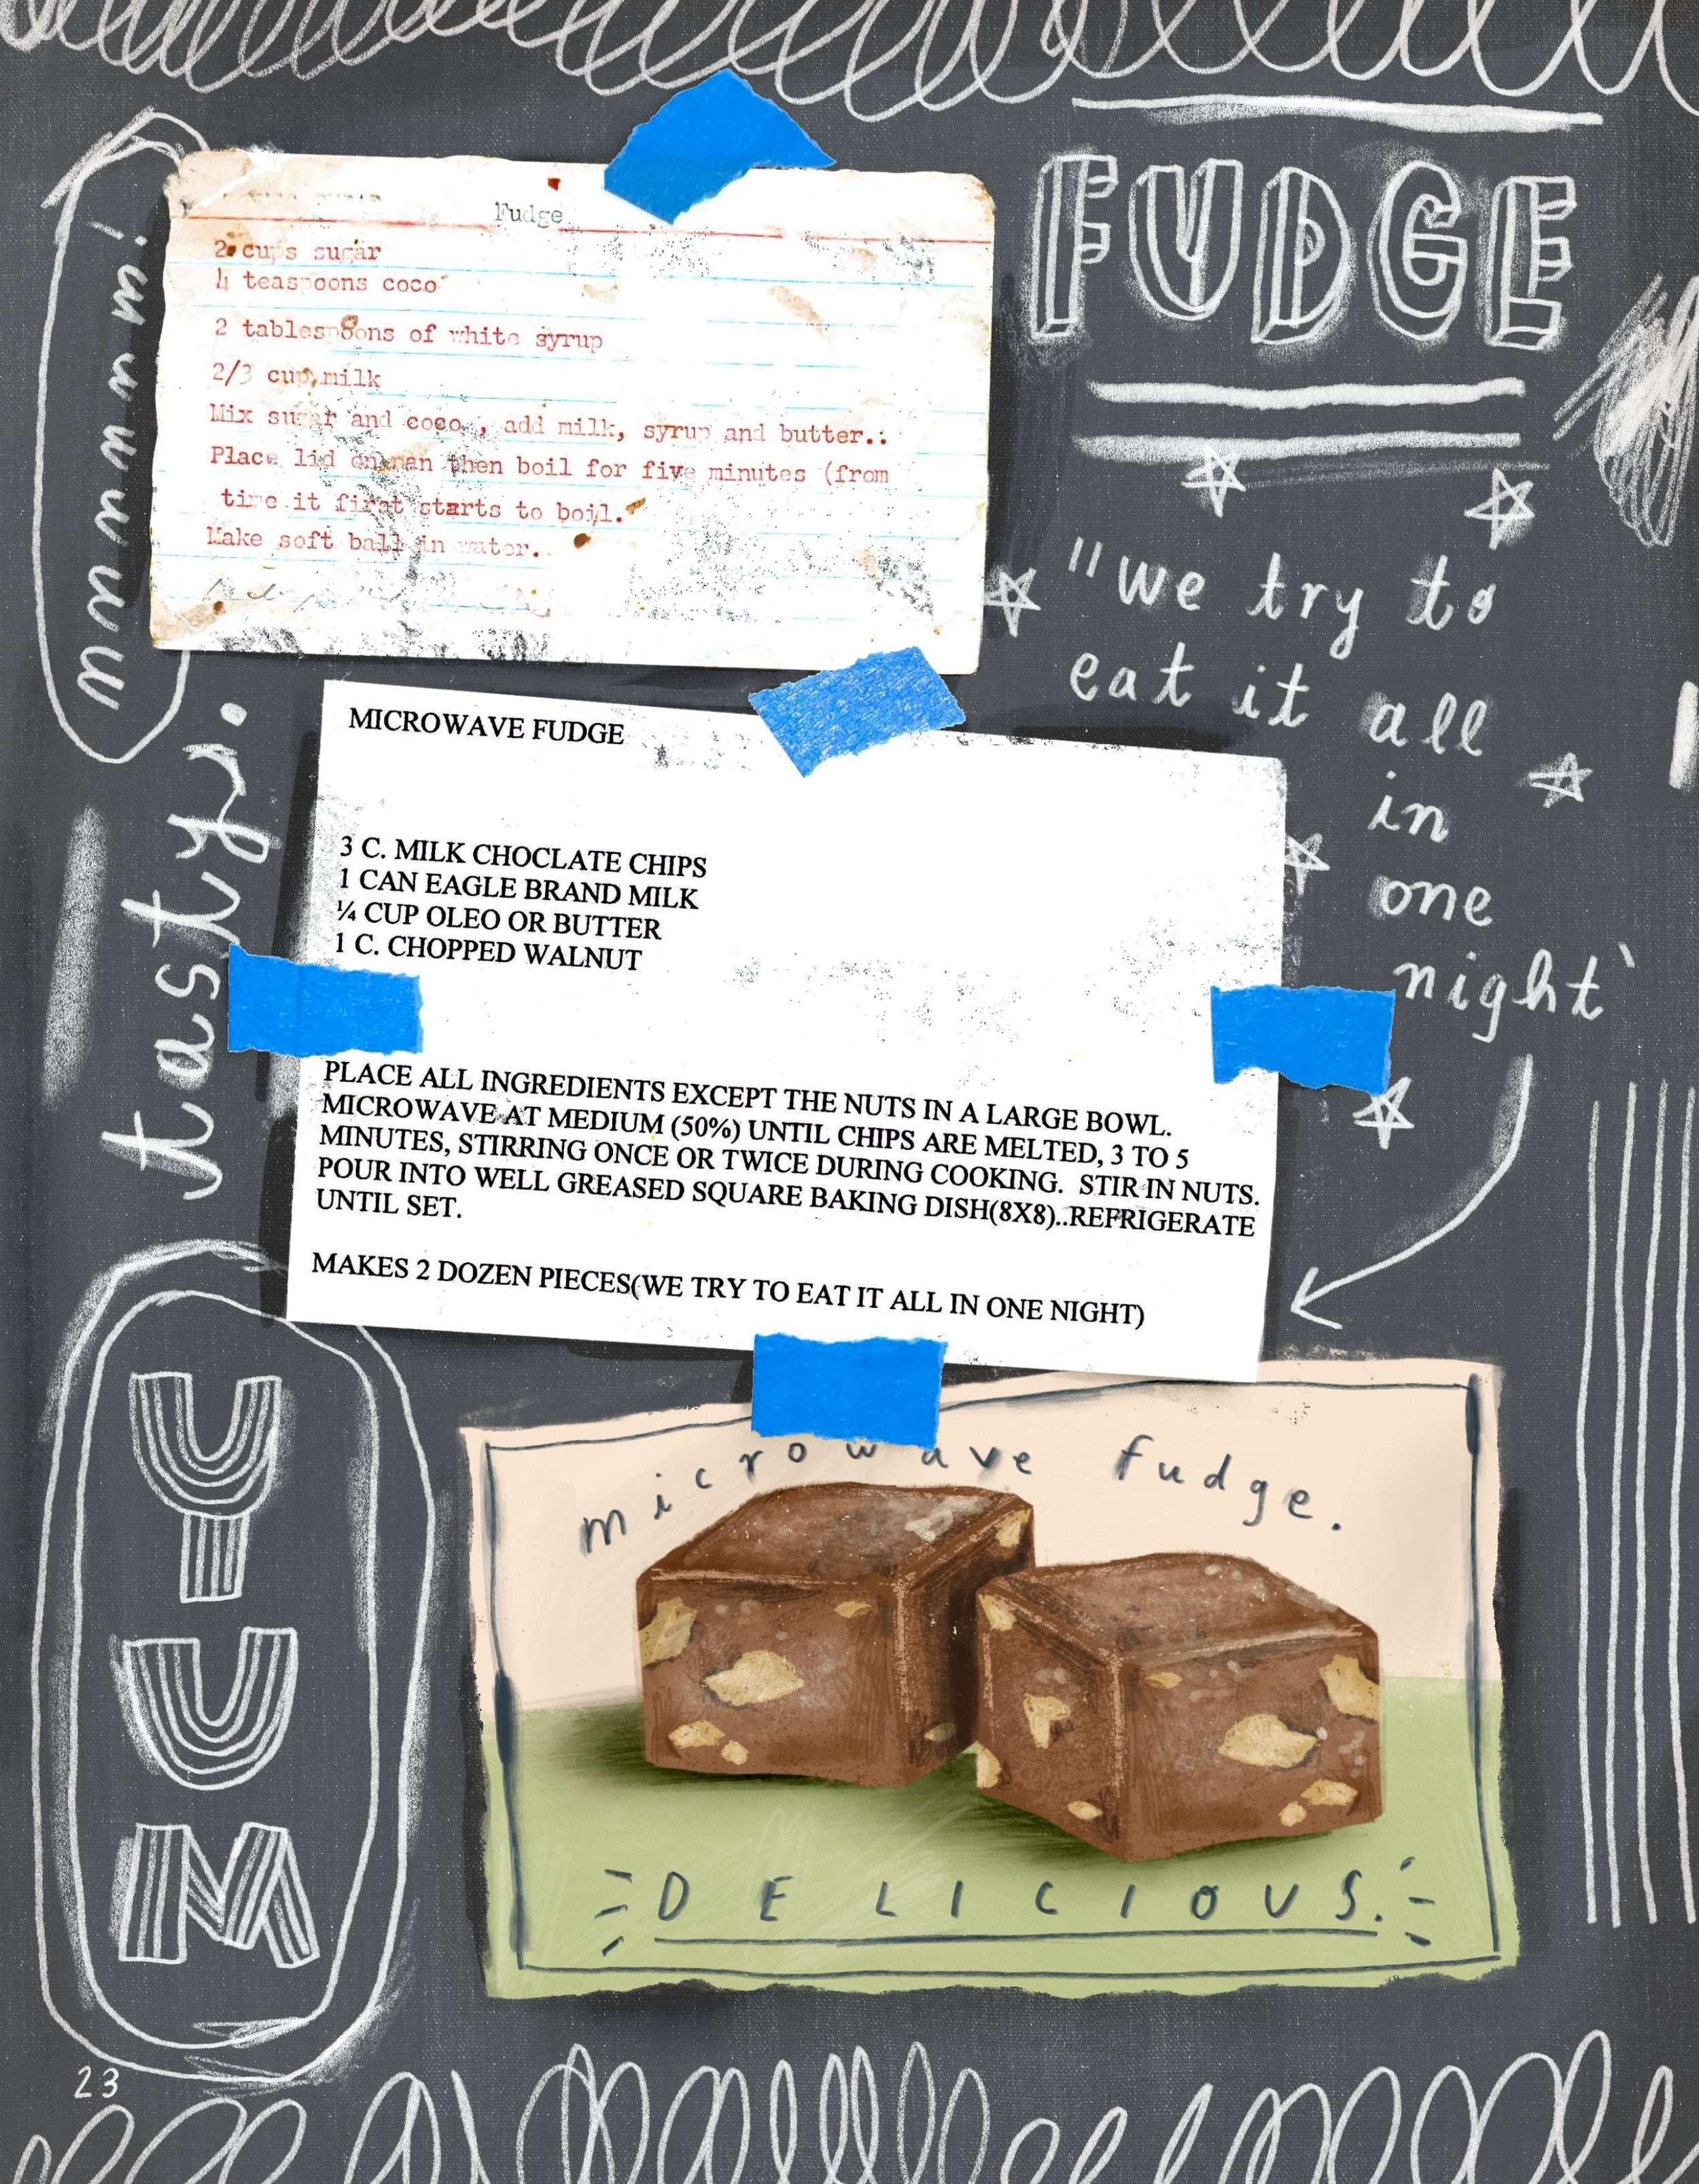 FUDGE
Fudge
2 cups sugar
4 teaspoons coco
2 tablespoons of white syrup
2/3 cup milk
Mix sugar and coco , add milk, syrup and butter.:
Place lid on pan then boil for five minutes (from
time it first starts to boil.
Make soft ball in water.
"we try to
eat it all
in
one
night
MICROWAVE FUDGE
3 C. MILK CHOCLATE CHIPS
1 CAN EAGLE BRAND MILK
¼ CUP OLEO OR BUTTER
1 C. CHOPPED WALNUT
PLACE ALL INGREDIENTS EXCEPT THE NUTS IN A LARGE BOWL.
MICROWAVE AT MEDIUM (50%) UNTIL CHIPS ARE MELTED, 3 TO 5
MINUTES, STIRRING ONCE OR TWICE DURING COOKING. STIR IN NUTS.
POUR INTO WELL GREASED SQUARE BAKING DISH(8X8)..REFRIGERATE
UNTIL SET.
MAKES 2 DOZEN PIECES(WE TRY TO EAT IT ALL IN ONE NIGHT)
tasty.
microwave fudge.
DELICIOUS.
23